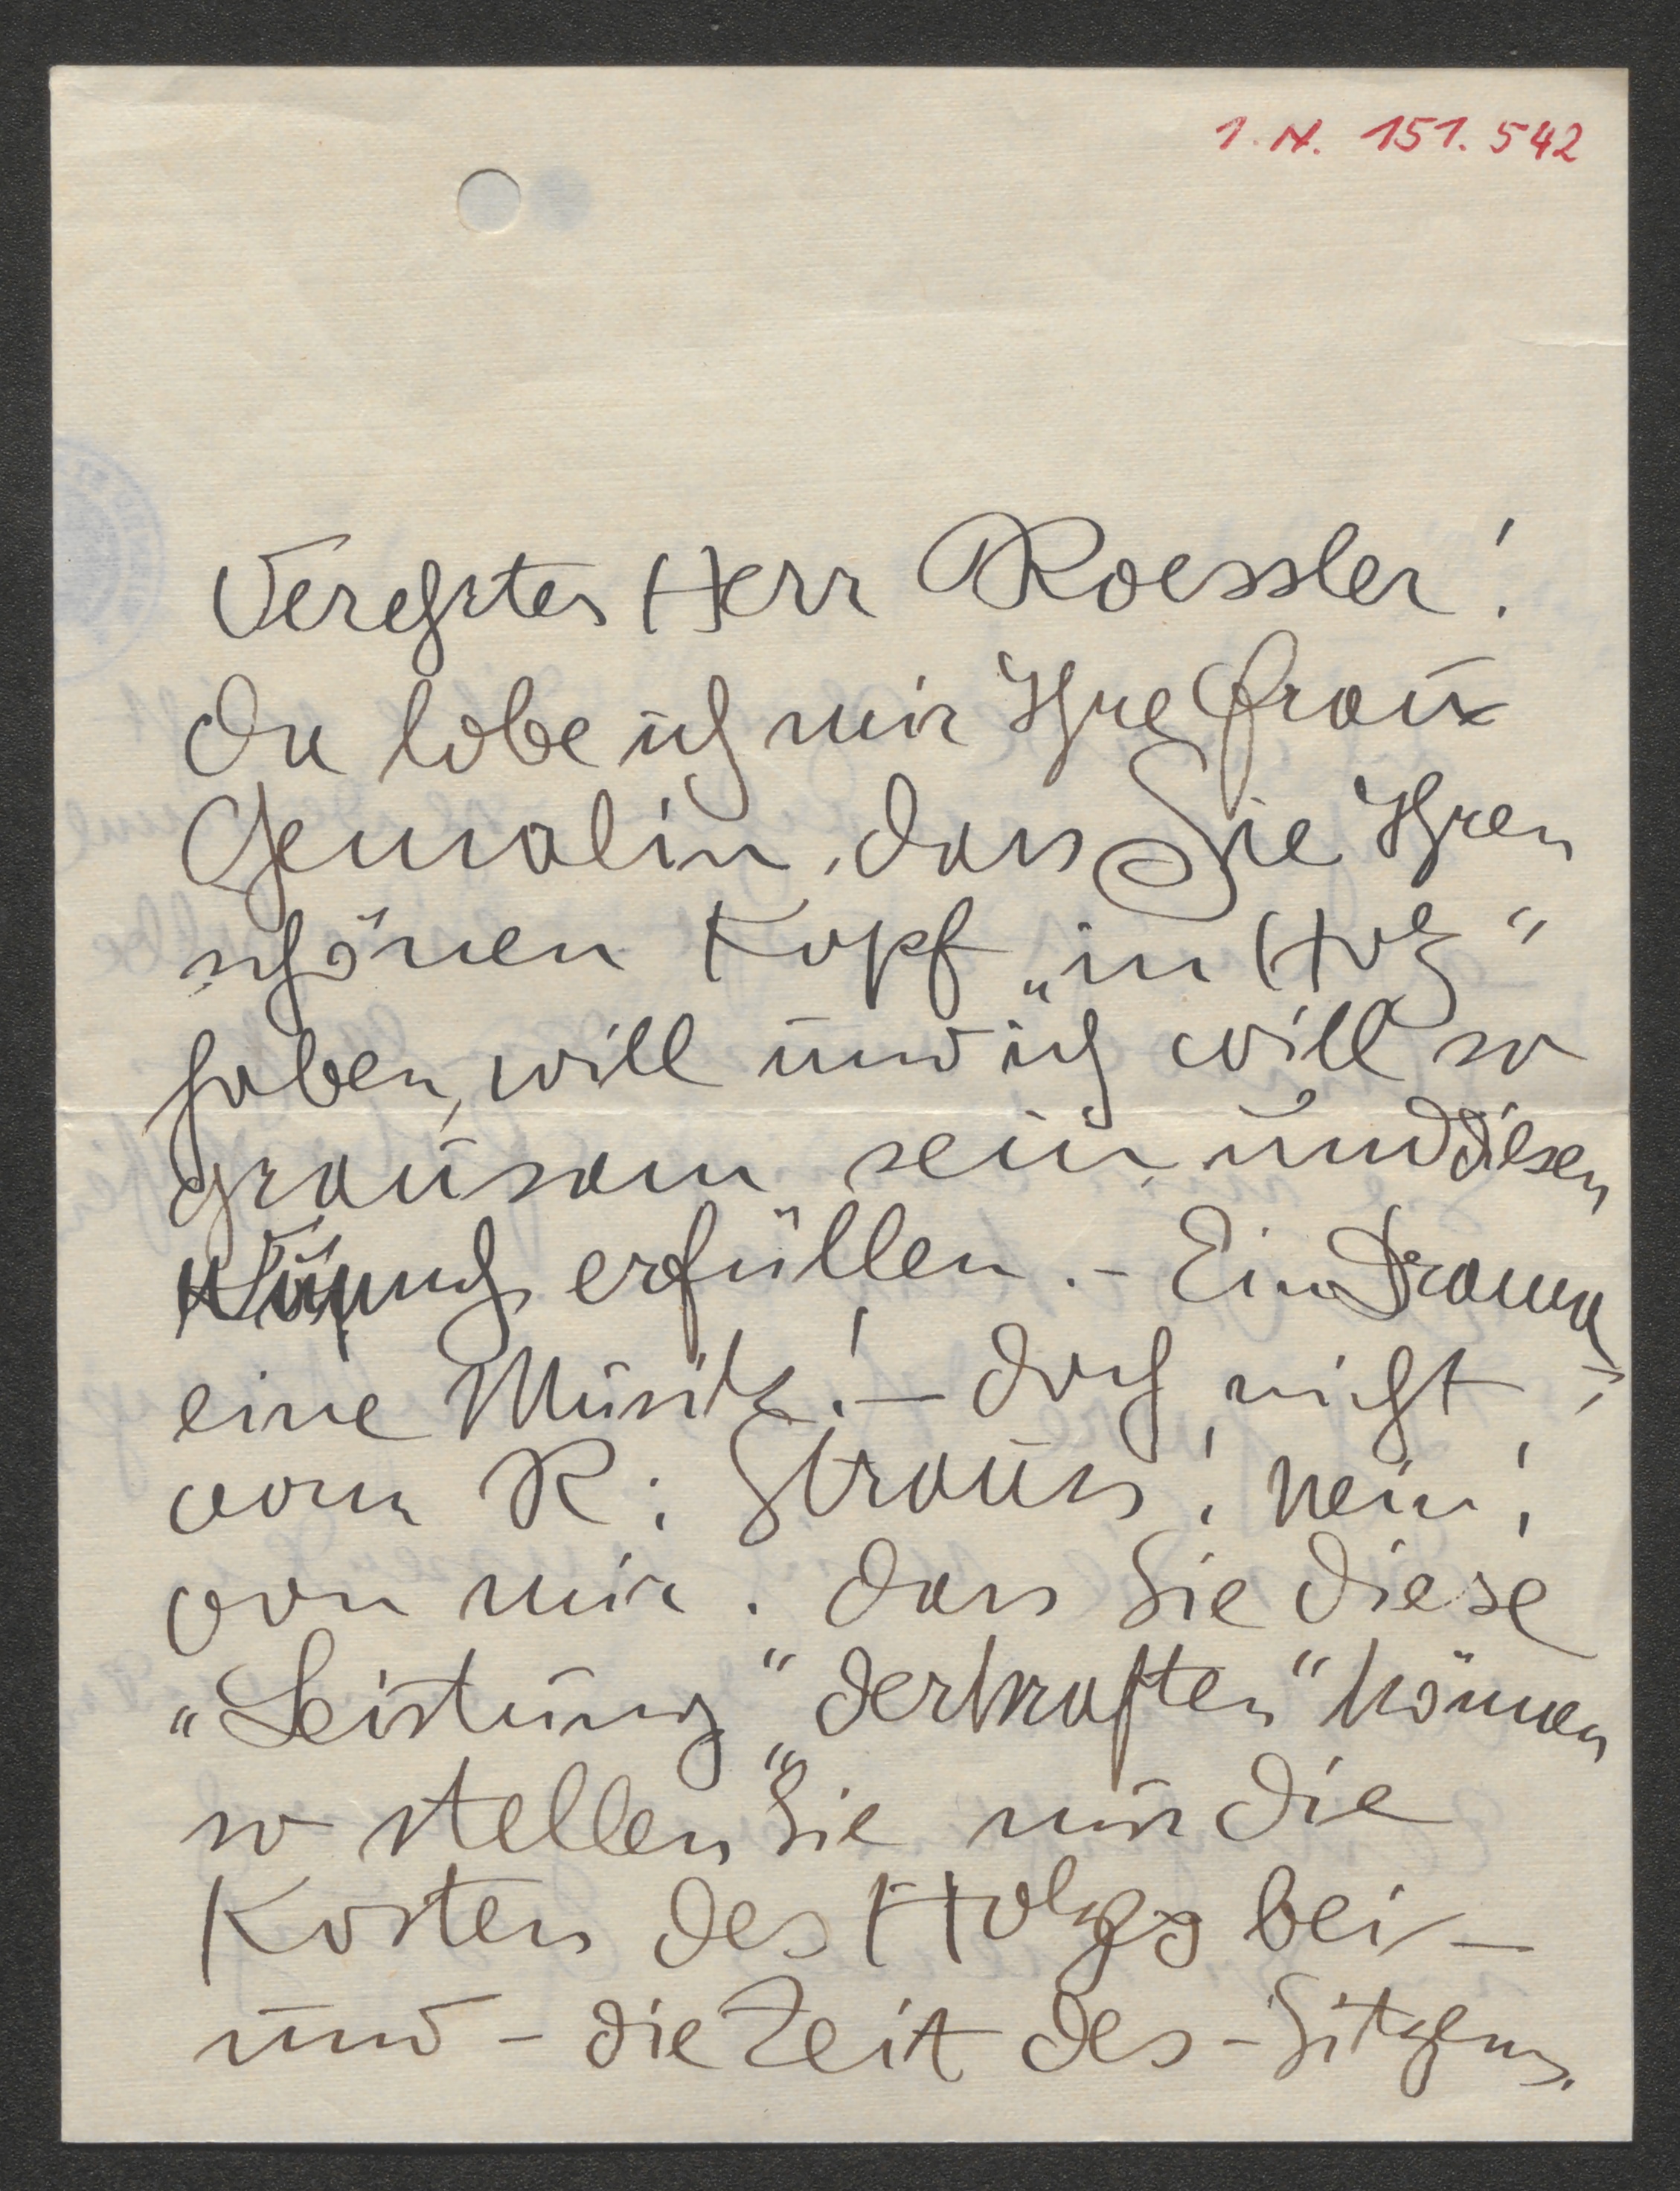 I. N. 151.542
Verehrter Herr Roessler!
Da lobe ich mir Ihre Frau
Gemalin, dass Sie Ihren
schönen Kopf „in Holz“
haben, will und ich will so
grausam sein und diesen
Wunsch erfüllen. – Ein Drama
eine Musik! – doch nicht –
vom R: Strauss! Nein!
von mir. Dass Sie diese
„Leistung“ „derkraften“ können
so stellen Sie nur die
Kosten des Holzes bei –
und – die Zeit des – Sitzens.